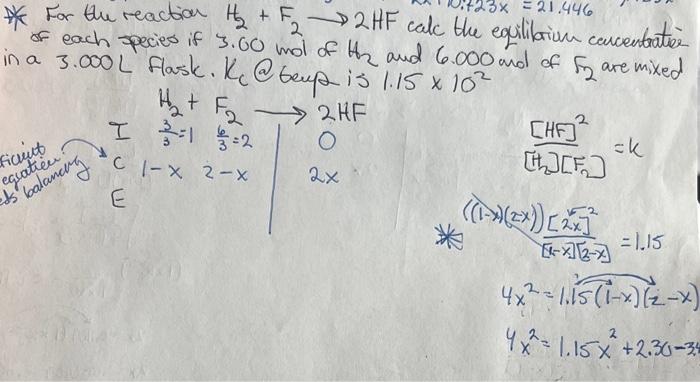 10.+23x = 21.446
* For the reaction H₂ + F₂ → 2HF calc the equilibrium concentration
of each species if 3.00 mol of H₂ and 6.000 mol of F₂ are mixed
in a 3.000 L flask. Kc @ temp is 1.15 x 10²
H₂ + F₂ → 2HF
I 3/3=1 6/3=2 0
C 1-x 2-x 2x
E
ficient
equation
balancing
[HF]²
[H₂][F₂] = K
* ((1-x)(2x)) [2x]²
[1-x][2-x] = 1.15
4x² = 1.15(1-x)(2-x)
4x² = 1.15x² + 2.30 - 3.